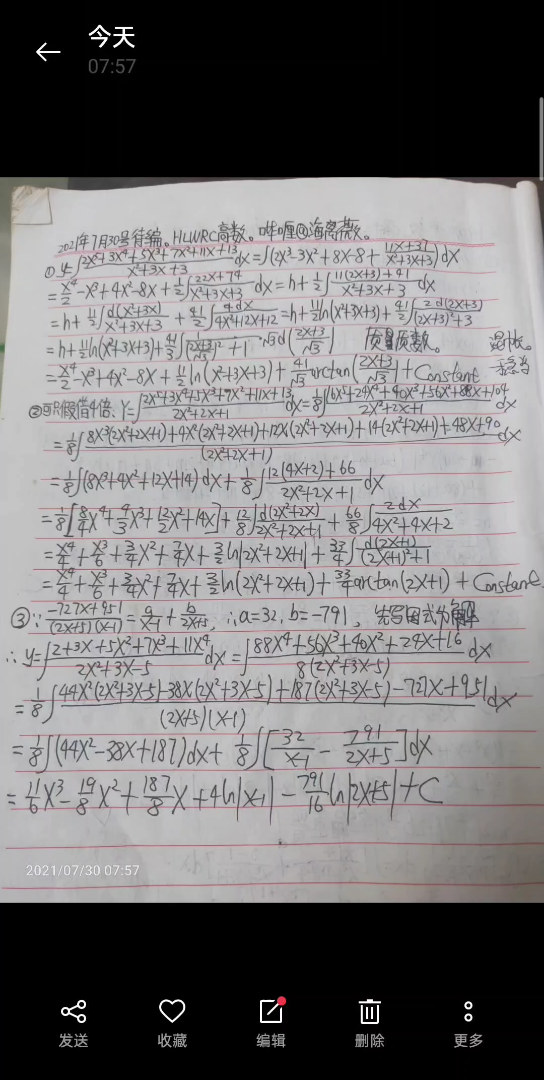 今天
07:57
2021年7月30号待编。HLWRC高数。哔哩@海离薇。
①y=∫(2x⁵+3x⁴+5x³+7x²+11x+13)/(x²+3x+3)dx=∫(2x³-3x²+8x-8+(11x+37)/(x²+3x+3))dx
=x⁴/2-x³+4x²-8x+1/2∫(22x+74)/(x²+3x+3)dx=h+1/2∫(11(2x+3)+41)/(x²+3x+3)dx
=h+11/2∫d(x²+3x)/(x²+3x+3)+41/2∫4dx/(4x²+12x+12)=h+11/2ln(x²+3x+3)+41/2∫2d(2x+3)/((2x+3)²+3)
=h+11/2ln(x²+3x+3)+41/3∫1/(((2x+3)/√3)²+1)·√3d((2x+3)/√3) 质量质数。
=x⁴/2-x³+4x²-8x+11/2ln(x²+3x+3)+41/√3arctan((2x+3)/√3)+Constant
=1/8∫(8x³(2x²+2x+1)+4x²(2x²+2x+1)+12x(2x²+2x+1)+14(2x²+2x+1)+48x+90)/(2x²+2x+1)dx
=1/8∫(8x³+4x²+12x+14)dx+1/8∫(12(4x+2)+66)/(2x²+2x+1)dx
=1/8[8/4x⁴+4/3x³+12/2x²+14x]+12/8∫d(2x²+2x)/(2x²+2x+1)+66/8∫2dx/(4x²+4x+2)
=x⁴/4+x³/6+3/4x²+7/4x+3/2ln|2x²+2x+1|+33/4∫d(2x+1)/((2x+1)²+1)
=x⁴/4+x³/6+3/4x²+7/4x+3/2ln(2x²+2x+1)+33/4arctan(2x+1)+Constant.
③∵(-727x+951)/((2x+5)(x-1))=a/(x-1)+b/(2x+5),∴a=32,b=-791,先写因式分解
∴y=∫(2+3x+5x²+7x³+11x⁴)/(2x²+3x-5)dx=∫(88x⁴+56x³+40x²+24x+16)/(8(2x²+3x-5))dx
=1/8∫(44x²(2x²+3x-5)-38x(2x²+3x-5)+187(2x²+3x-5)-727x+951)/((2x+5)(x-1))dx
=1/8∫(44x²-38x+187)dx+1/8∫[32/(x-1)-791/(2x+5)]dx
=11/6x³-19/8x²+187/8x+4ln|x-1|-791/16ln|2x+5|+C
2021/07/30 07:57
发送
收藏
编辑
删除
更多